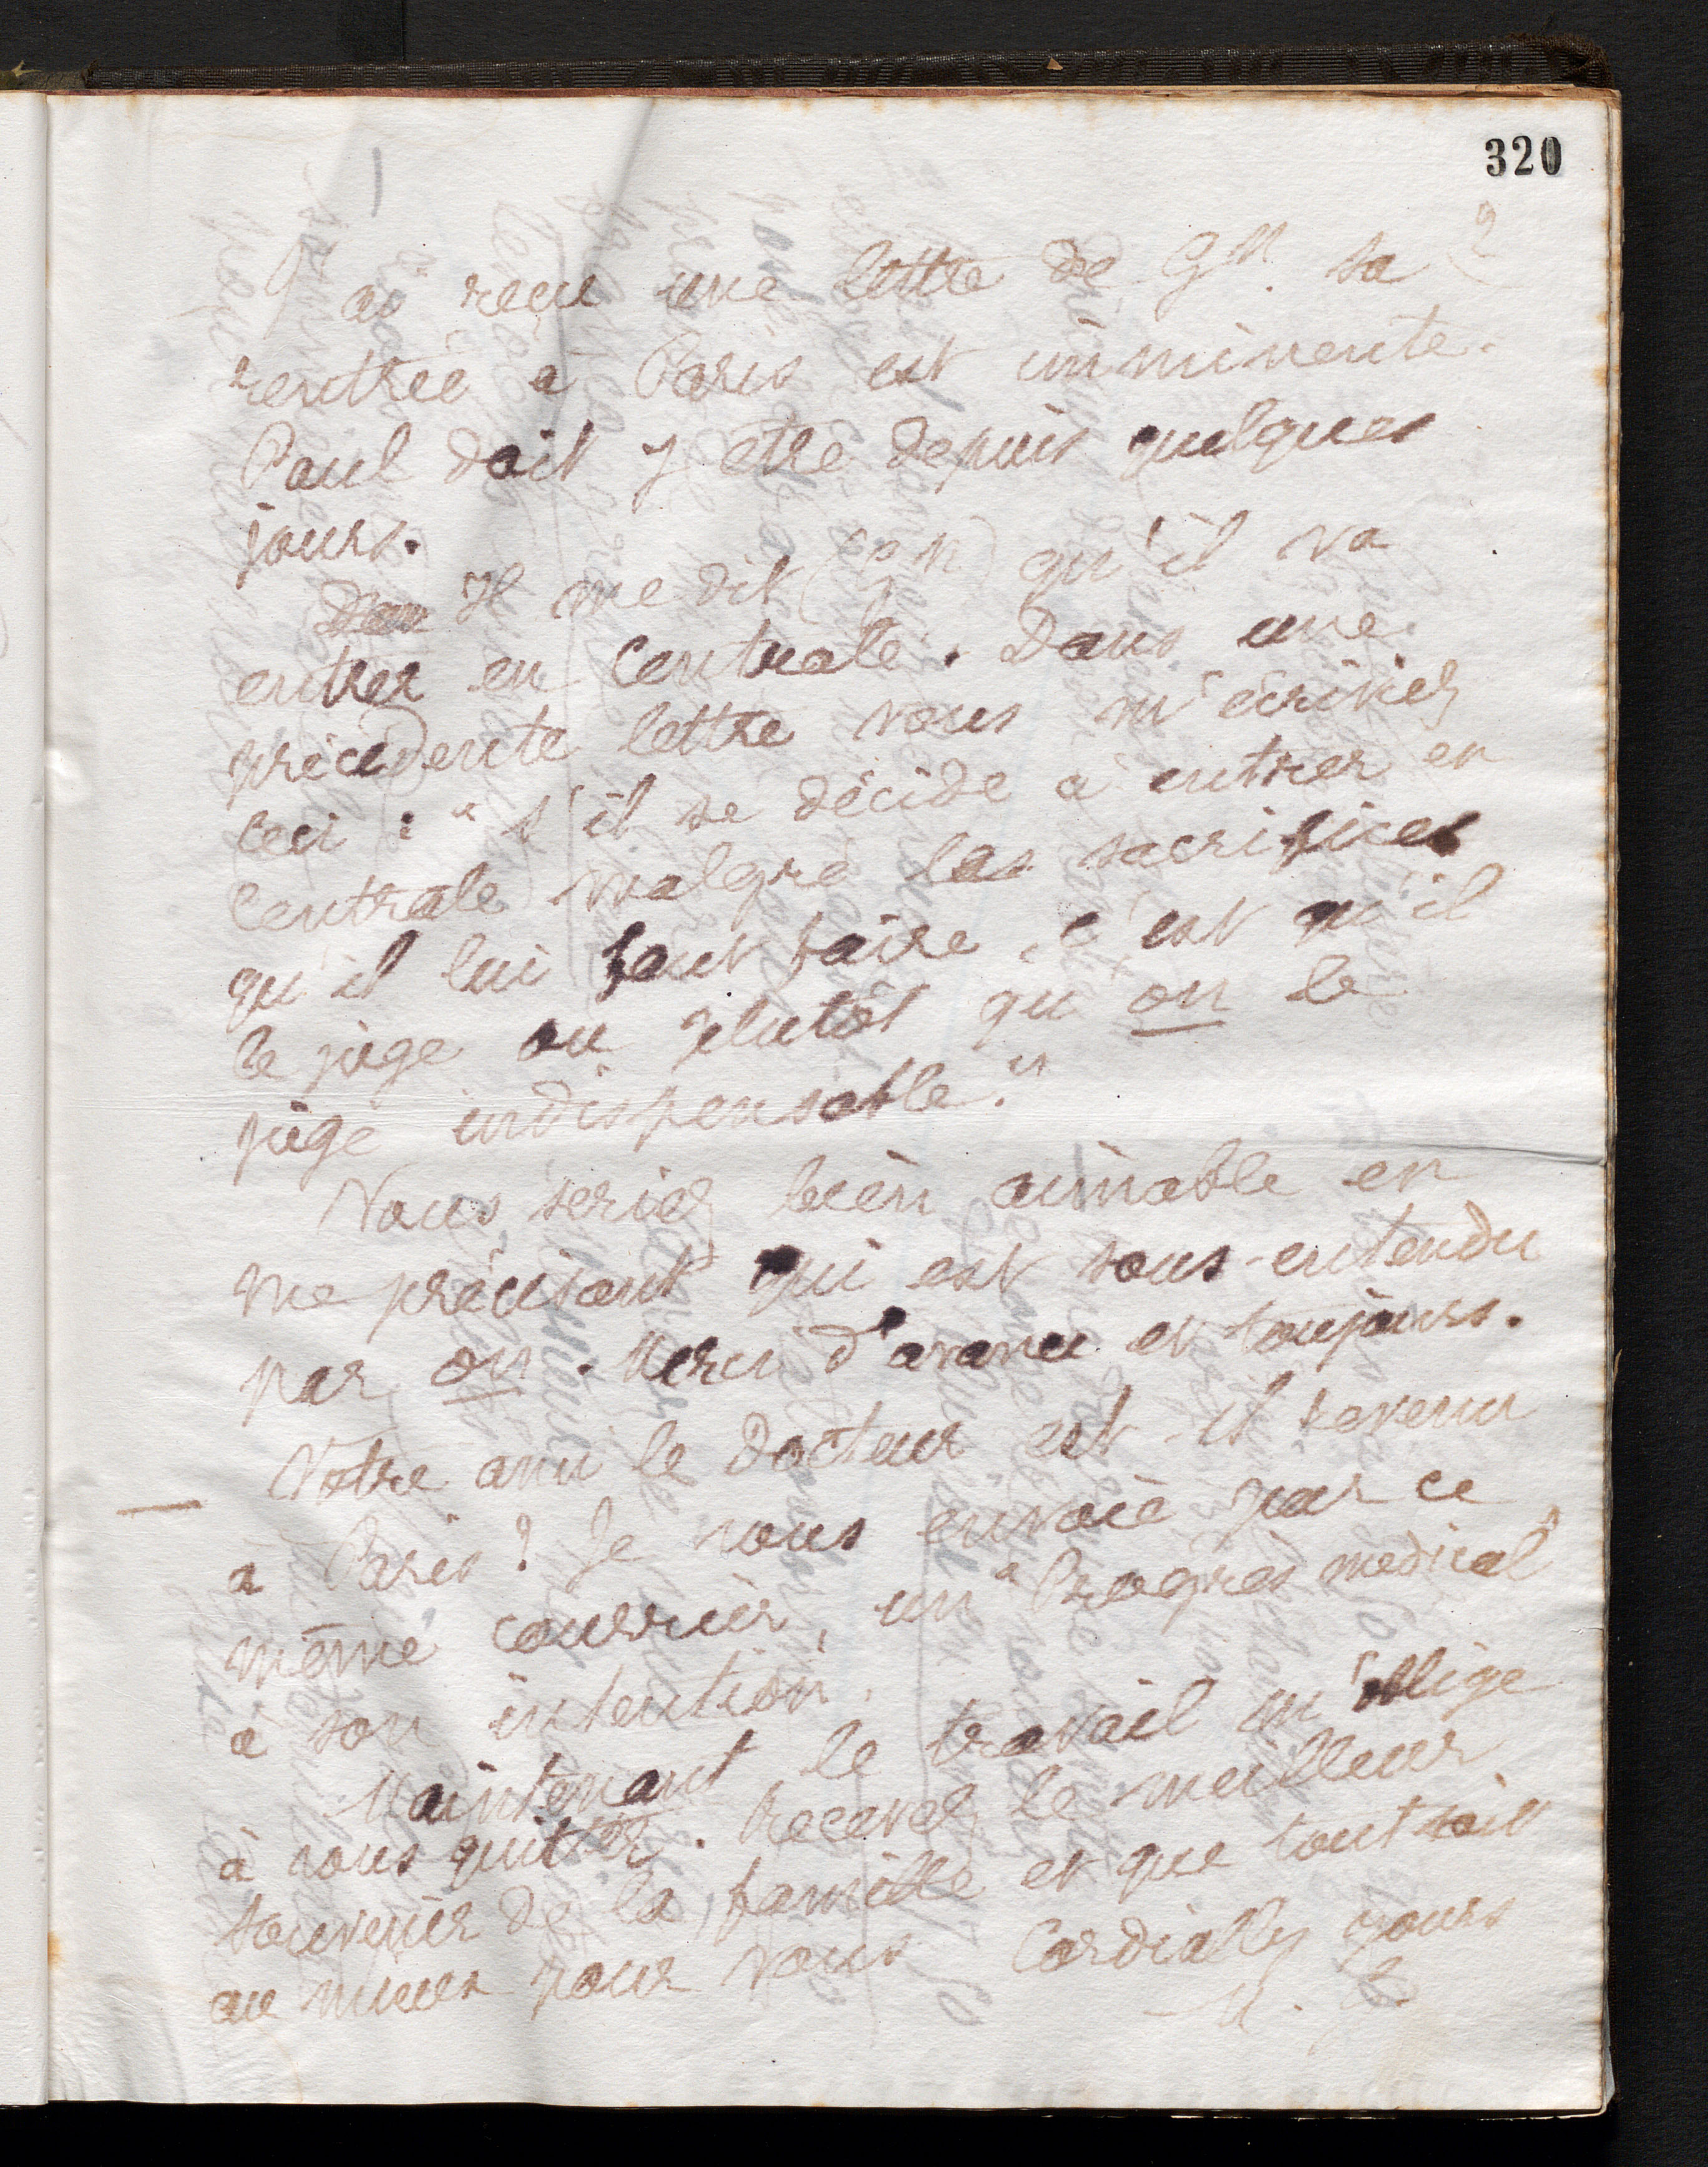 320
2
J'ai reçu une lettre de Gn. sa
rentrée à Paris est imminente.
Paul doit y etre depuis quelques
jours.
Il me dit (gn) qu'il va
entrer en Centrale. Dans une
précédente lettre vous m'écriviez
ceci : " s'il se décide à entrer en
Centrale malgré les sacrifices
qu'il lui faut faire, c'est qu'il
le juge ou plutôt qu'on le
juge indispensable."
Vous seriez bien aimable en
me précisant qui est sous-entendu
par on. Merci d'avance et toujours.
Votre ami le Docteur est-il revenu
à Paris ? Je vous envoie par ce
même courrier, un "Progrès médical"
à son intention.
Maintenant le travail m'oblige
à vous quitter. Recevez le meilleur
souvenir de la famille et que tout soit
au mieux pour vous Cordialy yours
M.